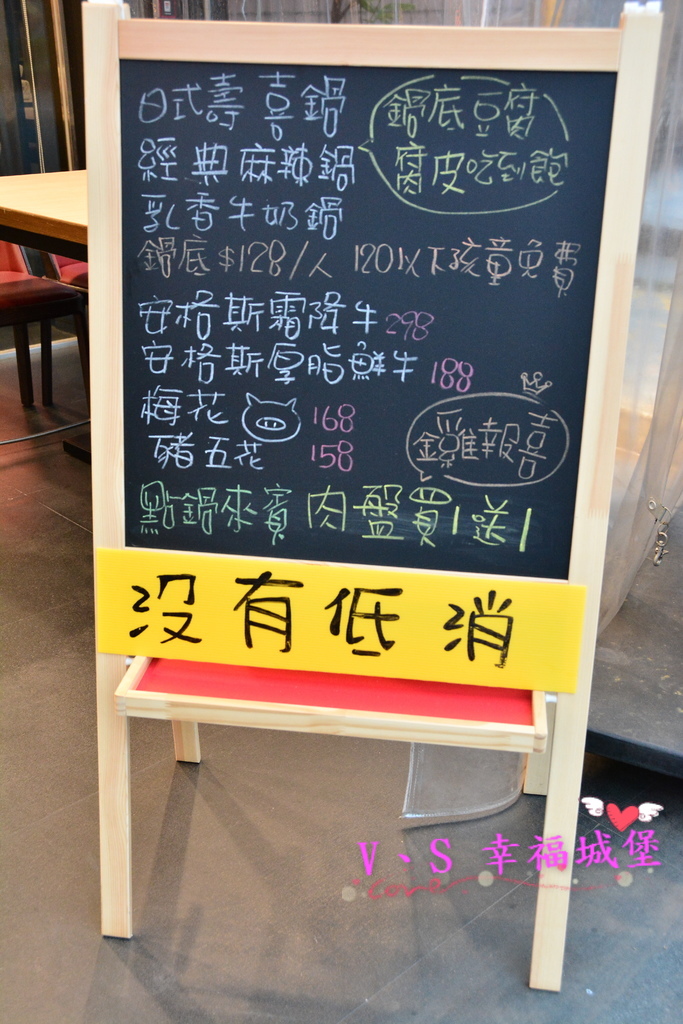 日式壽喜鍋
經典麻辣鍋
乳香牛奶鍋
鍋底豆腐
腐皮吃到飽
鍋底$128/人 120以下孩童免費
安格斯霜降牛 298
安格斯厚脂鮮牛 188
梅花 168
豬五花 158
金雞報喜
點鍋來賓 肉盤買1送1
没有低消
V、S 幸福城堡